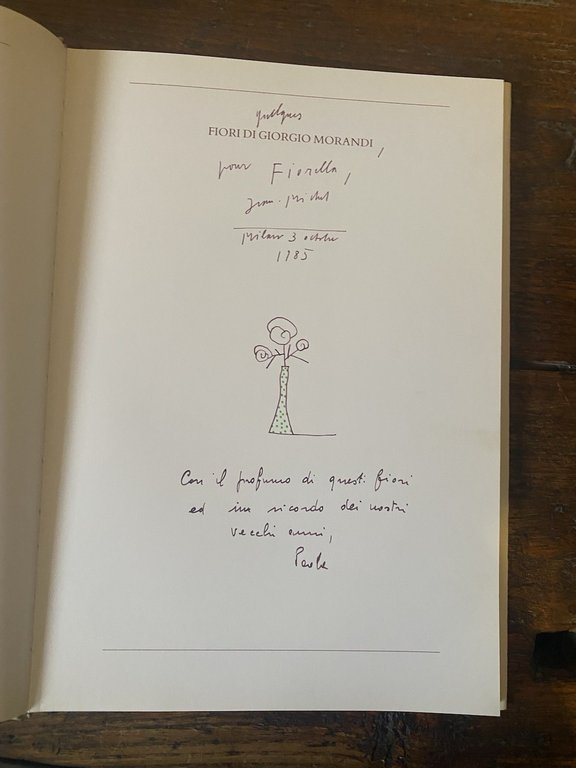 quelques
FIORI DI GIORGIO MORANDI,
pour Fiorella,
Jean-Michel
Milan 3 octobre
1985
Con il profumo di questi fiori
ed in ricordo dei nostri
vecchi anni,
Paola